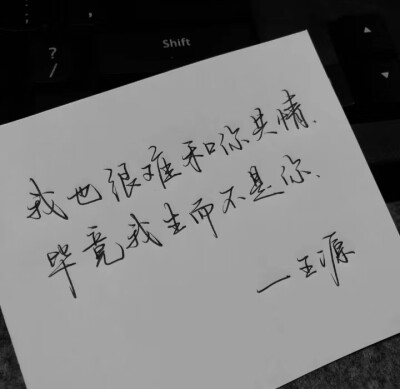 ;
,
?
/
Shift
▲
▼
我也很难和你共情.
毕竟我生而不是你.
—王源